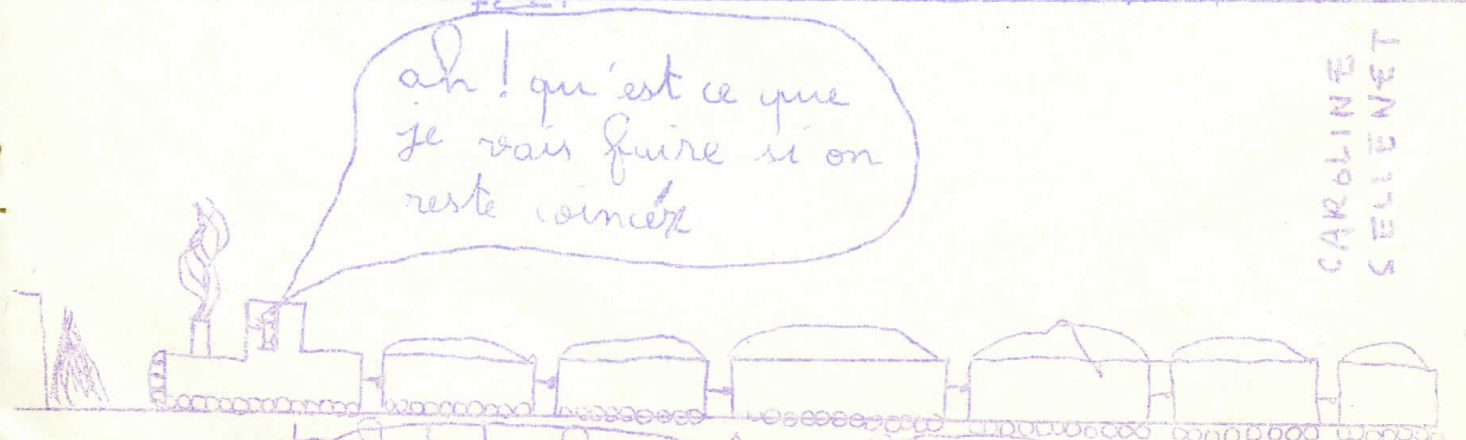 ah ! qu'est ce que
je vais fuire si on
reste coincéz
CAROLINE
SELIENET